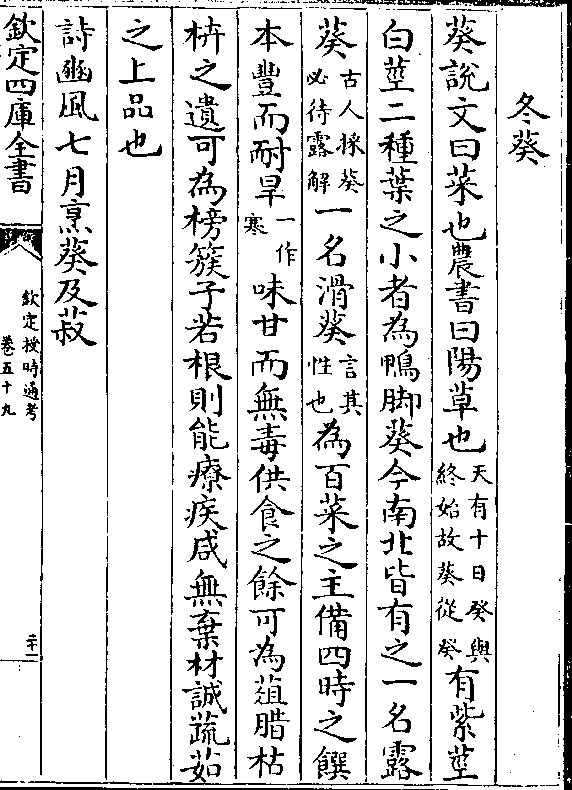 冬葵
葵說文曰菜也農書曰陽草也天有十日癸與終始故葵從癸有紫莖
白莖二種葉之小者為鴨脚葵今南北皆有之一名露
葵古人採葵必待露解一名滑葵言其性也為百菜之主備四時之饌
本豐而耐旱一作寒味甘而無毒供食之餘可為葅腊枯
枿之遺可為榜簇子若根則能療疾咸無棄材誠蔬茹
之上品也
詩豳風七月烹葵及菽
欽定四庫全書
欽定授時通考
卷五十九
二十一